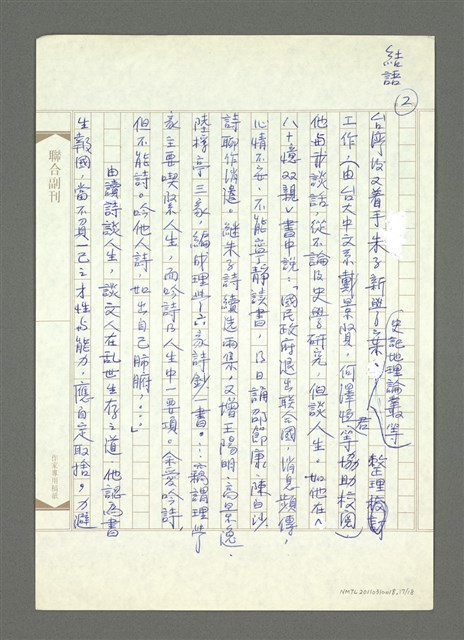 結語
②
台灣後又着手朱子新學案、史記地理論叢等整理校訂
工作，(由台大中文系戴景賢，何澤恆君等協助校閱)
他與我談話，從不論及史學研究，但談人生。如他在＜
八十憶双親＞書中說：「國民政府退出联合國，消息頻傳，
心情不安，不能寧靜讀書，乃日誦邵節康、陳白沙
詩聊作消遣。繼朱子詩續选兩集，又增王陽明、高景逸、
陸桴亭三家，編成理學六家詩鈔一書。…竊謂理學
家主要喫緊人生，而吟詩乃人生中一要項。余爱吟詩，
但不能詩。吟他人詩，如出自己肺腑，…」
由讀詩談人生，談文人在乱世生存之道，他認為書
生報國，當不負一己之才性與能力，應自定取捨，力避
聯合副刊
作家專用稿紙
NMTL20110310618,17/18